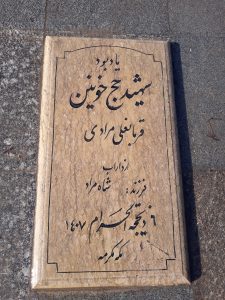 یادبود
شهید حج خونین
قربانعلی مرادی
از داراب
فرزند: شاه مراد
۶ ذیحجة الحرام ۱۴۰۷
مکه مکرمه